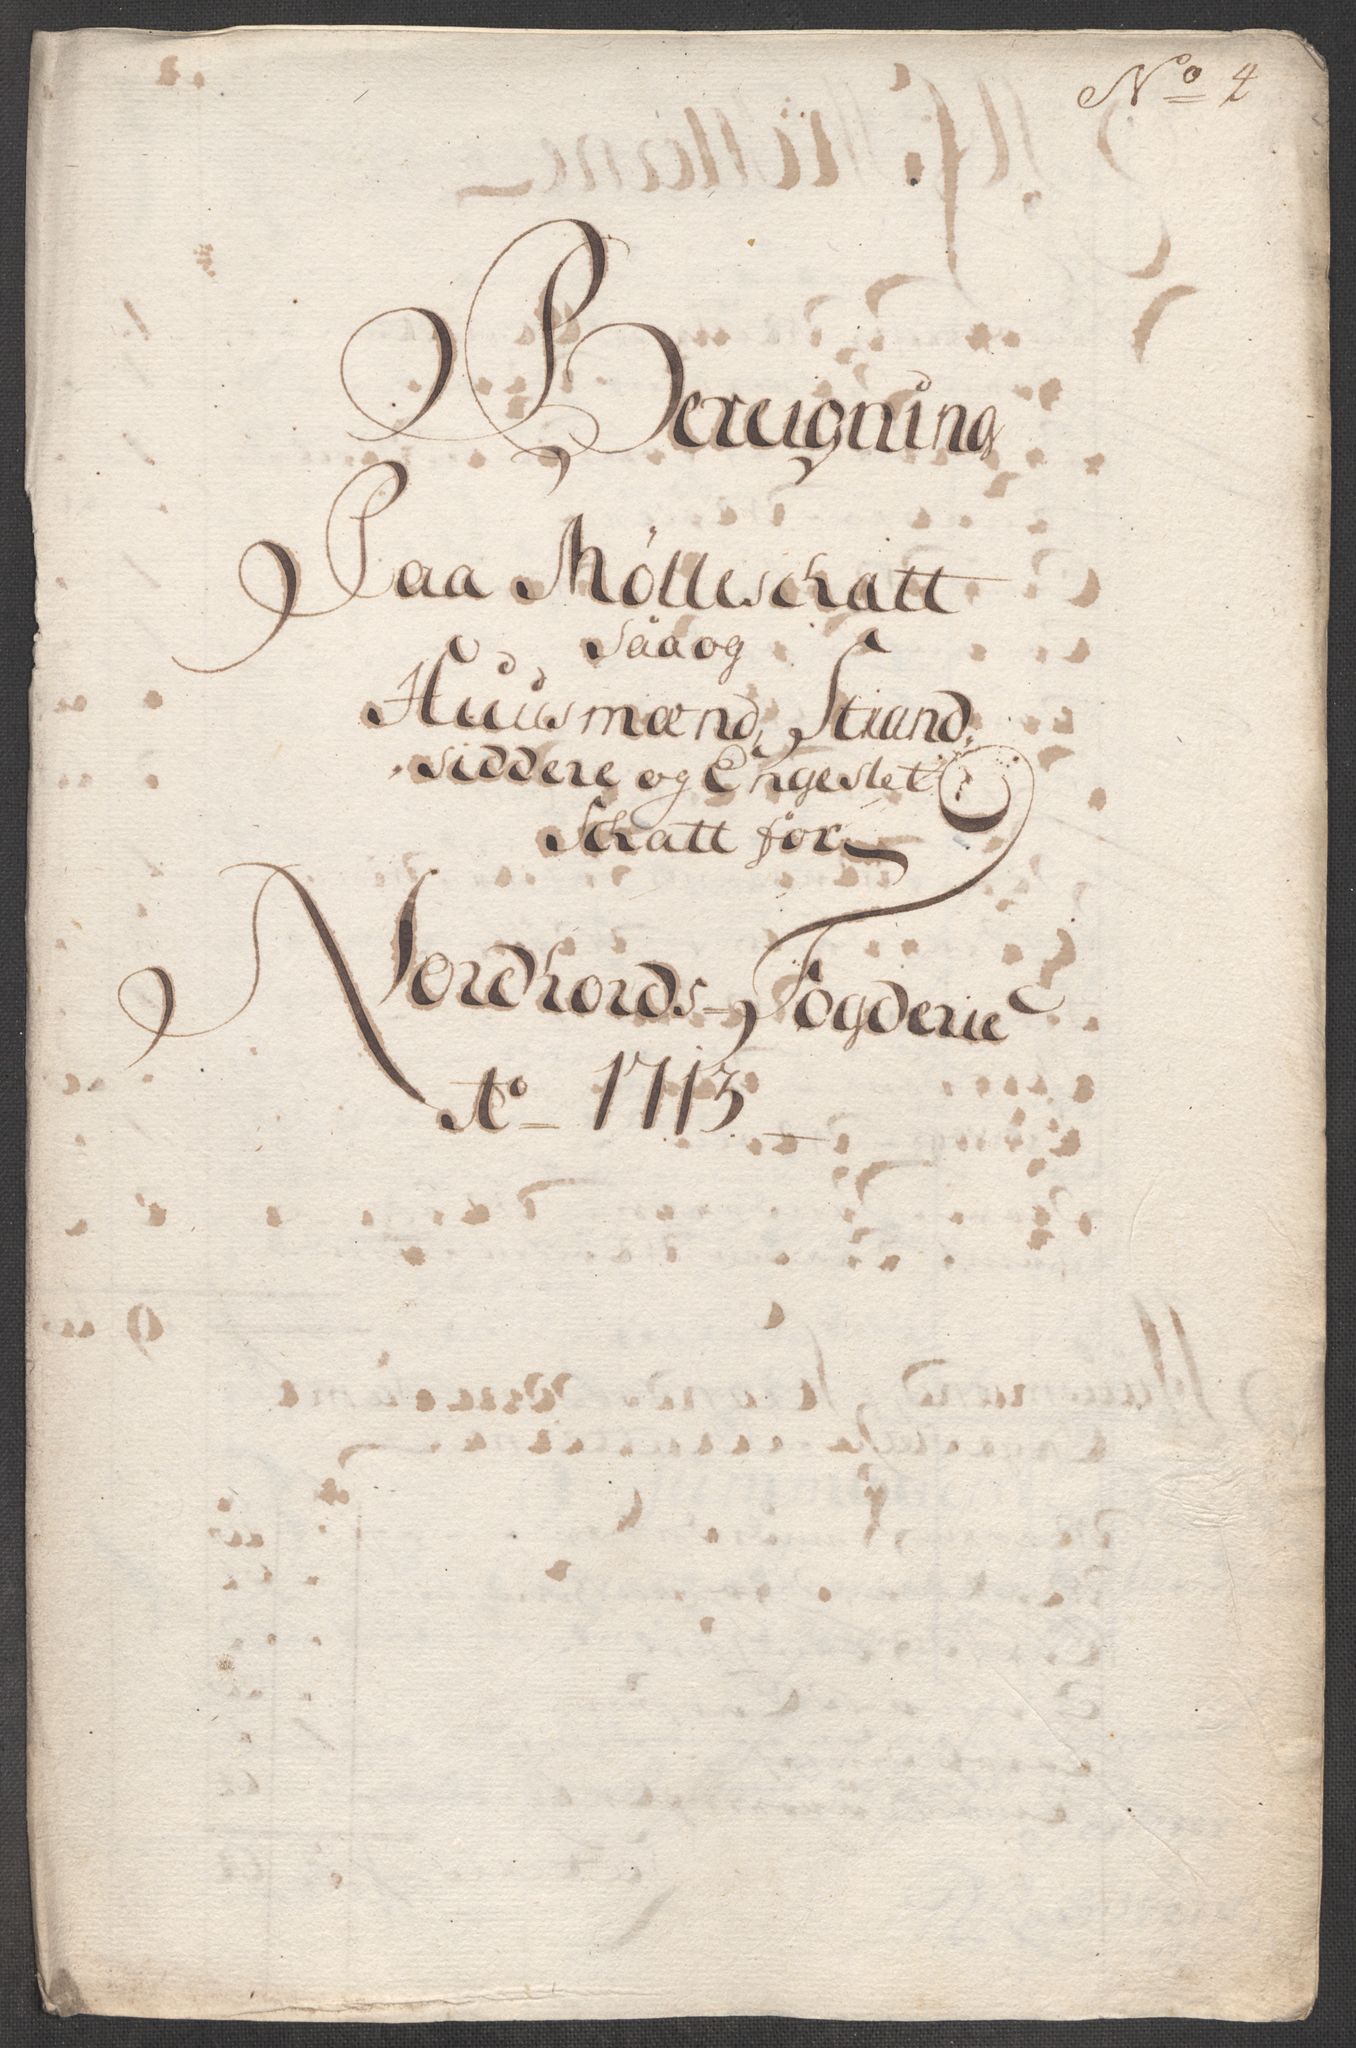 No 4
Bereigning
Paa Mölleschatt
Saa og
Huusmænd, Strand,
siddere og Engeslet
Schatt for
Nordhords Fogderie
Ao 1713